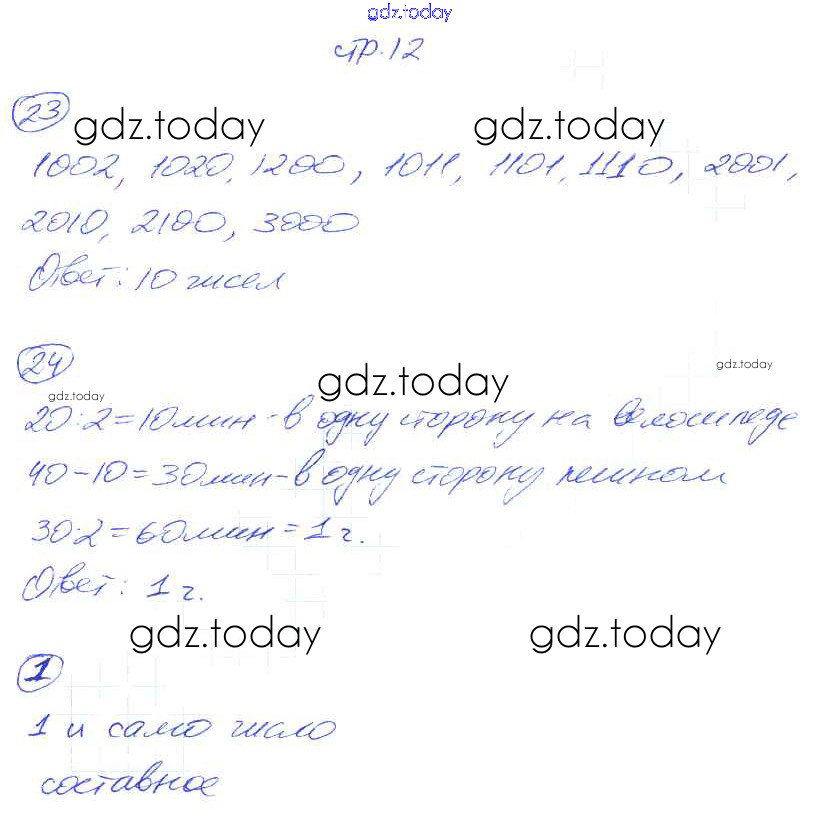 gdz.today
стр.12
23
gdz.today gdz.today
1002, 1020, 1200, 1011, 1101, 1110, 2001,
2010, 2100, 3000
Ответ: 10 чисел
24
gdz.today
gdz.today
gdz.today
20:2=10мин - в одну сторону на велосипеде
40-10=30мин - в одну сторону пешком
30·2=60мин=1 ч.
Ответ: 1 ч.
gdz.today gdz.today
1
1 и само число
составное